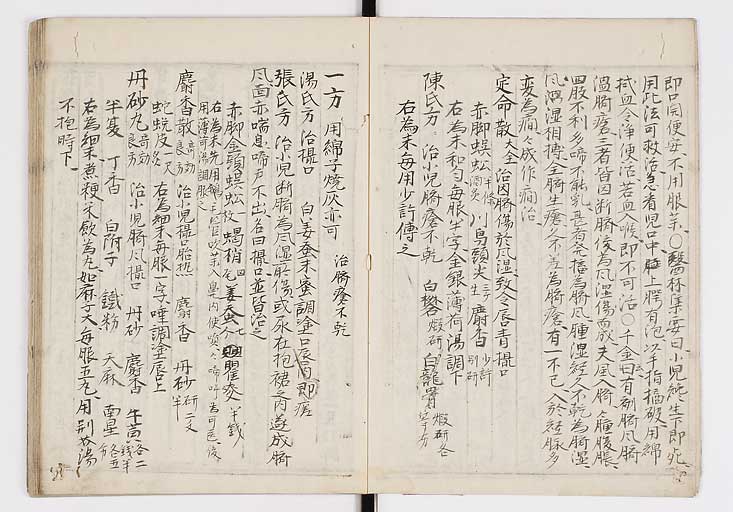 即口開便安不用服藥○醫林集要曰小兒純生下即死
用此法可救治急看兒口中上腭有泡以手指摘破用綿
拭血令淨便活若血入喉即不可治○千金曰有臍風臍
濕臍瘡三者皆因斷臍後為風濕傷而成夫風入臍腫腹脹
四肢不利多啼不能乳甚者發搐為臍風腫濕經久不乾為臍濕
風濕相搏令臍生瘡久不差為臍瘡有一不已入於經脉多
変為癇々成作癇治
定命散 大全 治因臍傷於風湿致令唇青撮口
赤脚蜈蚣 半條酒炙 川烏頭尖 三个 麝香 少許別研
右為末和勻每服半字金銀薄荷湯調下
陳氏方 治小兒臍瘡不乾 白礬 煅研 白龍骨 煅研各
右為末每用少許傅之
一方 用綿子焼灰亦可 治臍瘡不乾
湯氏方 治撮口 白姜蚕末蜜調塗口唇內即痊
張氏方 治小兒斷臍為風湿所傷或尿在抱裙之內遂成臍
風面赤喘急啼声不出名曰撮口並皆治之
赤脚金頭蜈蚣 一枚 蝎梢 四尾 姜蚕 七 瞿麥 半錢
右為末先用鵝毛管吹藥入鼻內使噴々啼叫為可医後
用薄荷湯調服之
麝香散 治小兒撮口胎熱 麝香 丹砂 研二文
蛇蛻皮 炙一尺 右為細末每服一字唾調塗唇上
丹砂丸 奇効良方 治小兒臍風撮口 丹砂 麝香 牛黄 各二
半夏 丁香 白附子 鐵粉 天麻 南星
右為細末煮粳米飲為丸如麻子大每服五丸用荊芥湯
不抱時下